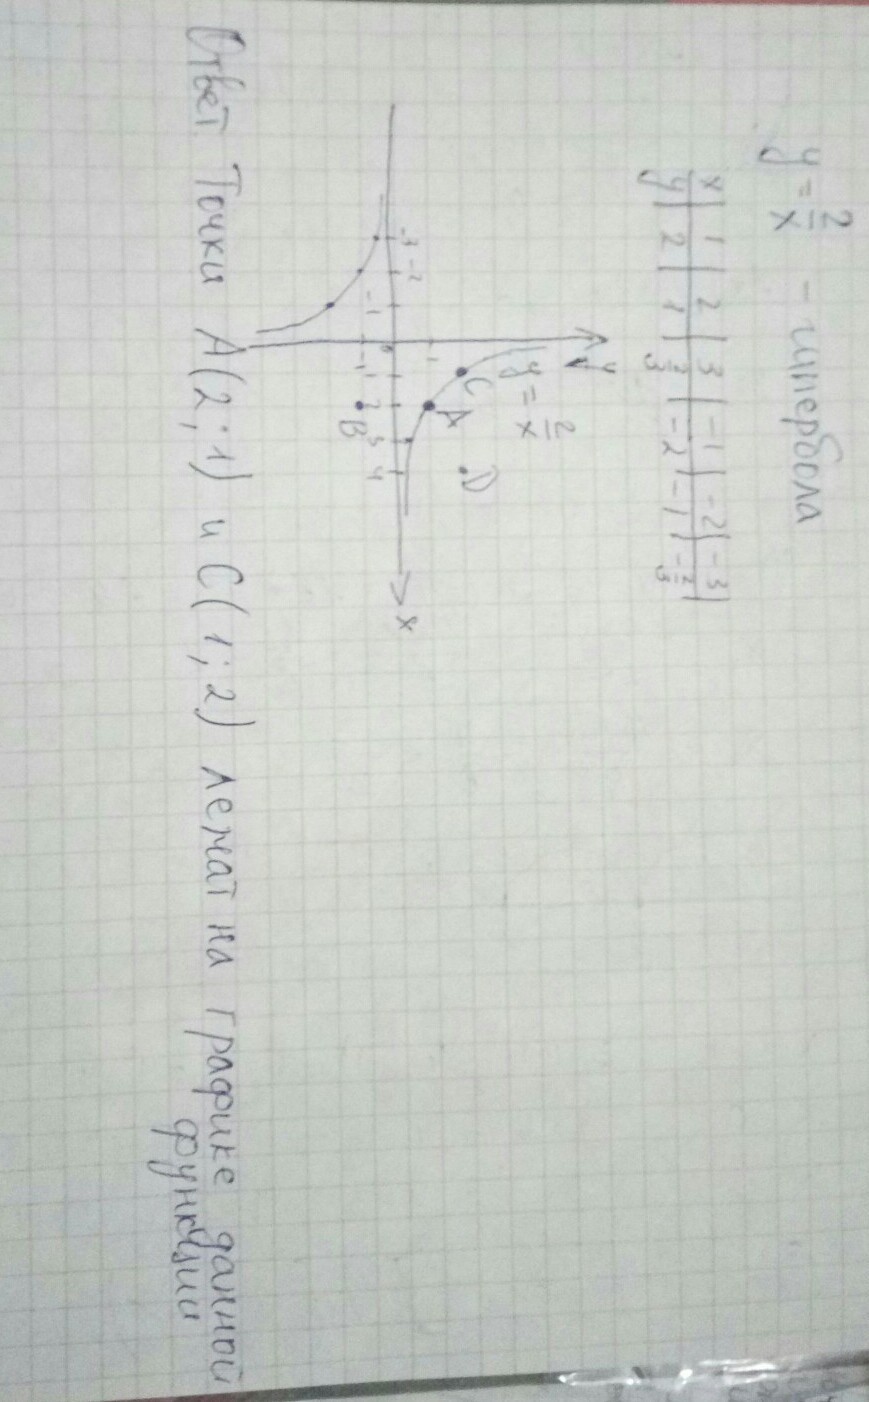 y = 2/x - гипербола
x | 1 | 2 | 3 | -1 | -2 | -3 |
y | 2 | 1 | 2/3 | -2 | -1 | -2/3 |
y
y = 2/x
C
A
D
1
-3 -2 -1 1 2 3 4 x
-1
B
Ответ Точки A(2;1) и C(1;2) лежат на графике данной
функции